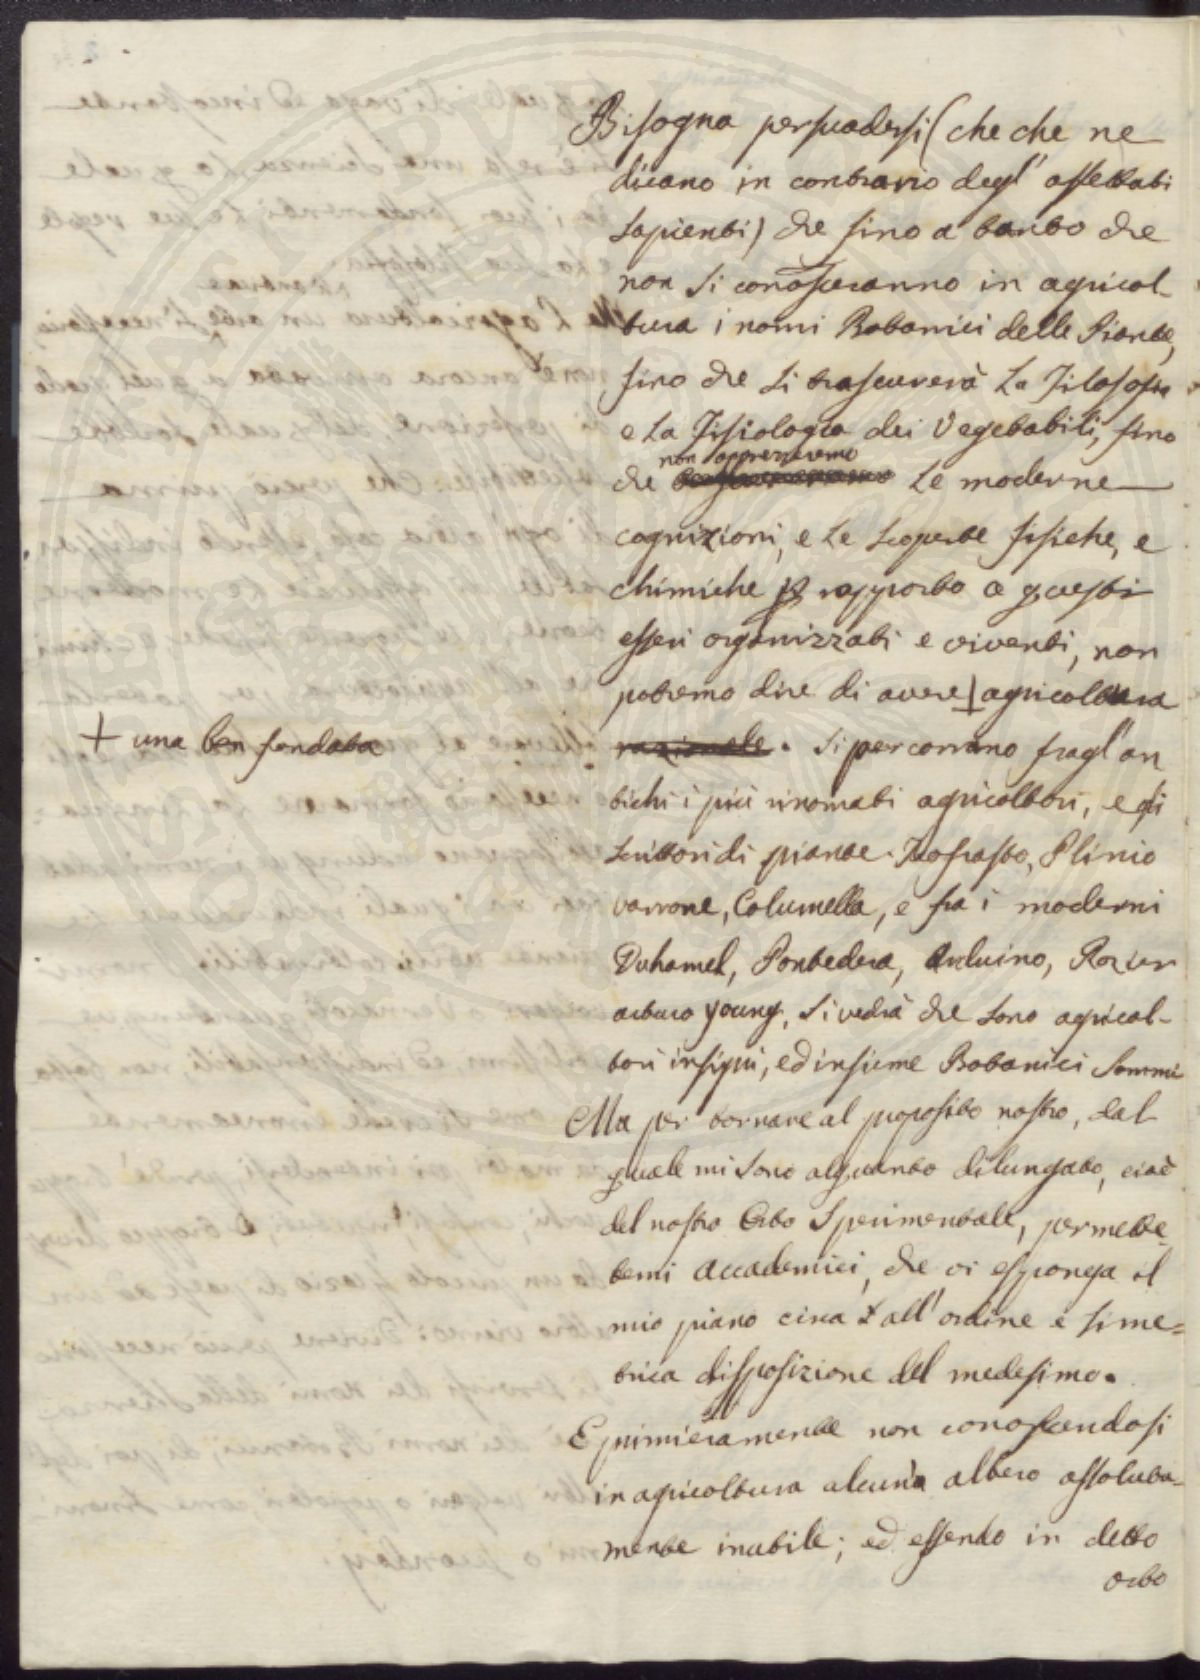 Bisogna persuadersi (che che ne
dicano in contrario degl' affettati
sapienti) che fino a tanto che
non si conosceranno in agricol-
tura i nomi Botanici delle Piante,
fino che si trascurerà la Filosofia
e la Fisiologia dei Vegetabili, fino
non apprezzeremo
che le moderne
cognizioni, e le scoperte fisiche, e
chimiche p rapporto a questi
esseri organizzati e viventi, non
potremo dire di avere + agricoltura
+ una ben fondata
razionale. Si percorrano fragl' an
tichi i più rinomati agricoltori, e gli
scrittori di piante. Teofrasto, Plinio
varrone, Columella, e fra i moderni
Duhamel, Pontedera, Arduino, Rozier
arturo young, si vedrà che sono agricol-
tori insigni, ed insieme Botanici sommi
Ma per tornare al proposito nostro, dal
quale mi sono alquanto dilungato, cioè
del nostro Orto Sperimentale, permette-
temi Accademici, che vi esponga il
mio piano circa all' ordine e sime=
trica disposizione del medesimo.
E primieramente non conoscendosi
in agricoltura alcun albero assoluta-
mente inutile; ed essendo in detto
orto